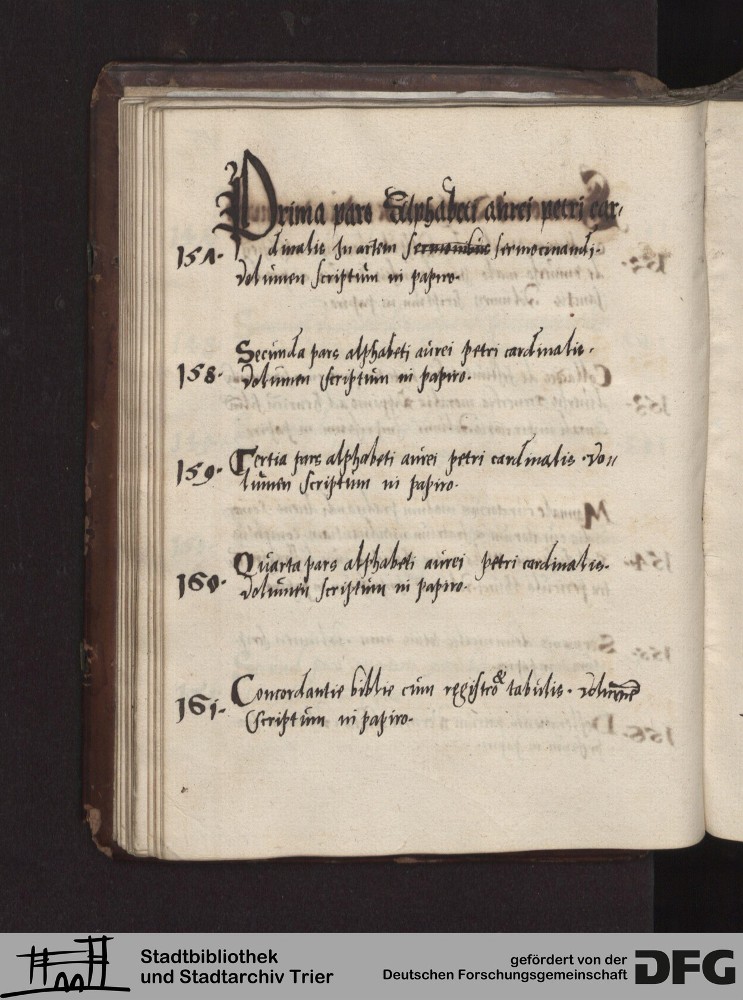 Prima pars Alphabeti aurei petri car-
157. dinalis In artem sermonibus sermocinandi.
volumen scriptum in papiro.
Secunda pars alphabeti aurei petri cardinalis.
158. volumen scriptum in papiro.
159. Tertia pars alphabeti aurei petri cardinalis. vo=
lumen scriptum in papiro.
Quarta pars alphabeti aurei petri cardinalis.
160. volumen scriptum in papiro.
Concordantie biblie cum registro & tabulis. volumen
161. scriptum in papiro.
Stadtbibliothek
und Stadtarchiv Trier
gefördert von der
Deutschen Forschungsgemeinschaft
DFG